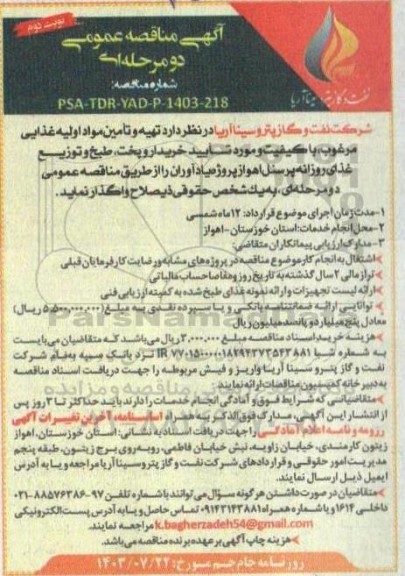 نوبت دوم
آگهی مناقصه عمومی
دو مرحله ای
شماره مناقصه:
PSA-TDR-YAD-P-1403-218
نفت و گاز پترو سینا آریا
شرکت نفت و گاز پترو سینا آریا در نظر دارد تهیه و تأمین مواد اولیه غذایی
مرغوب، با کیفیت و مورد تایید خریدار و پخت، طبخ و توزیع
غذای روزانه پرسنل اهواز پروژه یادآوران را از طریق مناقصه عمومی
دو مرحله ای، به یک شخص حقوقی ذیصلاح واگذار نماید.
۱-مدت زمان اجرای موضوع قرارداد: ۱۲ ماه شمسی
۲-محل انجام خدمات: استان خوزستان - اهواز
۳-مدارک ارزیابی پیمانکاران متقاضی:
اشتغال به انجام کار موضوع مناقصه در پروژه های مشابه و رضایت کارفرمایان قبلی
تراز مالی ۲ سال گذشته به تاریخ روز و مفاصا حساب مالیاتی
ارائه لیست تجهیزات و ارائه نمونه غذای طبخ شده به کمیته ارزیابی فنی
توانایی ارائه ضمانتنامه بانکی و یا سپرده نقدی به مبلغ (۵,۵۰۰,۰۰۰,۰۰۰ ریال)
معادل پنج میلیارد و پانصد میلیون ریال
هزینه خرید اسناد مناقصه مبلغ ۳,۰۰۰,۰۰۰ ریال می باشد که متقاضیان می بایست
به شماره شبا IR بانک سپه به نام شرکت
نفت و گاز پترو سینا آریا واریز و فیش مربوطه را جهت دریافت اسناد مناقصه
به دبیرخانه کمیسیون مناقصات ارائه نمایند.
متقاضیانی که شرایط فوق و آمادگی انجام خدمات را دارند باید حداکثر تا ۳ روز پس
از انتشار این آگهی، مدارک فوق الذکر به همراه اساسنامه، آخرین تغییرات آگهی
رزومه و نامه اعلام آمادگی را جهت دریافت اسناد به نشانی: استان خوزستان، اهواز
زیتون کارمندی، خیابان زاویه، نبش خیابان فاطمی، روبروی برج زیتون، طبقه پنجم
مدیریت امور حقوقی و قراردادهای شرکت نفت و گاز پترو سینا آریا مراجعه و یا به آدرس
ایمیل ذیل ارسال نمایند.
متقاضیان در صورت داشتن هر گونه سوال می توانند با شماره تلفن ۹۷-۸۸۵۷۶۳۸۶-۰۲۱
داخلی ۱۶۱۴ و یا شماره همراه ۰۹۱۴۳۱۴۳۸۸۱ تماس حاصل و یا به آدرس پست الکترونیکی
k.bagherzadeh54@gmail.com مراجعه نمایند.
هزینه چاپ آگهی بر عهده برنده مناقصه می باشد.
روزنامه جام جم مورخ: ۱۴۰۳/۰۷/۲۴